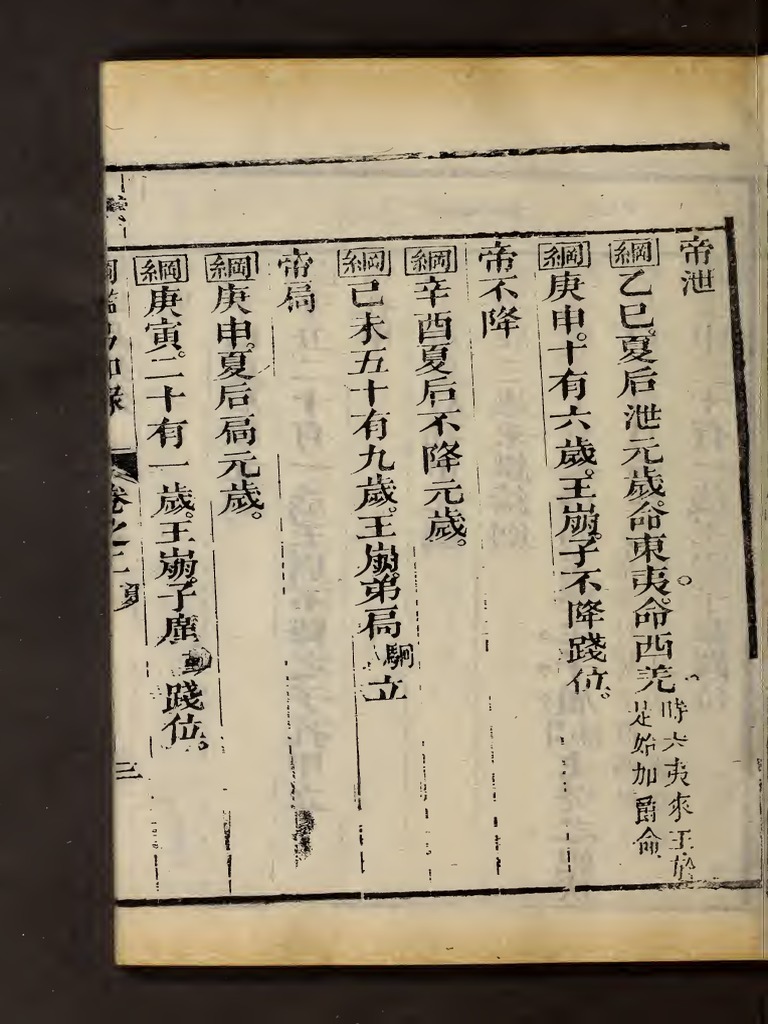 帝泄
綱乙巳。夏后泄元歲。命東夷。命西羌。時六夷來王於是始加爵命
綱庚申。十有六歲。王崩。子不降踐位。
帝不降
綱辛酉夏后不降元歲。
綱己未五十有九歲。王崩。弟扃立
帝扃
綱庚申。夏后扃元歲。
綱庚寅。二十有一歲。王崩。子廑踐位。
卷之 夏 三